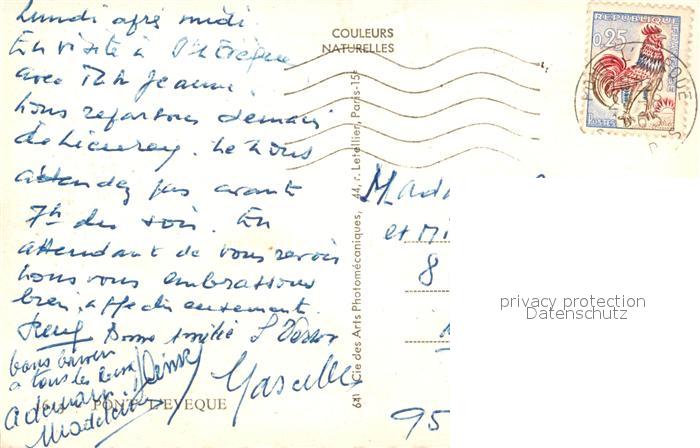 Lundi après midi.
En visite à Pt l'Evêque
avec Jeanne.
Nous repartons demain
de Lieurey. Ne nous
attendez pas avant
7h du soir. En
attendant de vous revoir
nous vous embrassons
bien affectueusement.
Bonne amitié
bons baisers
a tous les
a demain
Madeleine
PONT L'EVEQUE
COULEURS
NATURELLES
641 Cie des Arts Photomécaniques, 44, r. Letellier, Paris-15e
REPUBLIQUE FRANÇAISE
0,25
POSTES
et
8
95
privacy protection
Datenschutz